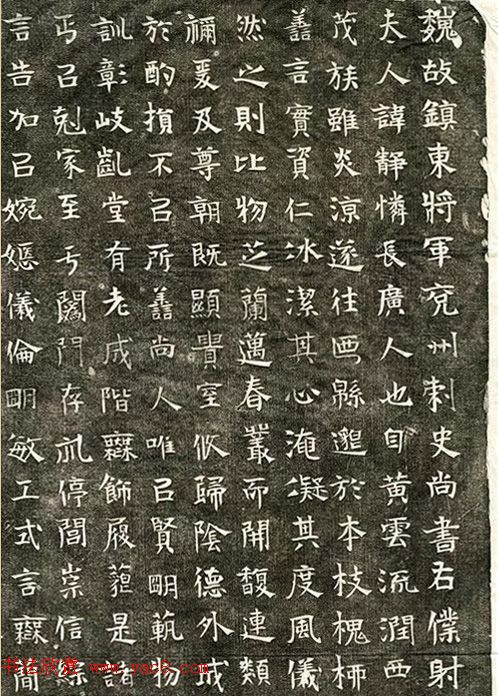 魏故鎮東將軍兗州刺史尚書右僕射
夫人諱靜憐長廣人也自黃雲流潤西
茂族雖炎涼遂往而緜邈於本枝槐柿
善言實資仁冰潔其心淹凝其度風儀
然之則比物芝蘭邁春叢而開馥連類
禰爰及尊朝既顯貴室攸歸陰德外
於酌損不㠯所善尚人唯㠯賢明範物
訓彰歧凱堂有老成階無飾履蘊是諸
㠯剋家至于闔門存停閭崇信
言告加㠯婉嫕儀倫明敏工式言無閒
书法欣赏 www.yac8.com